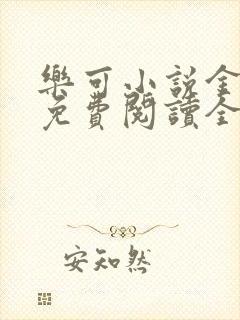 樂可小説全
免費閱讀全
安知然